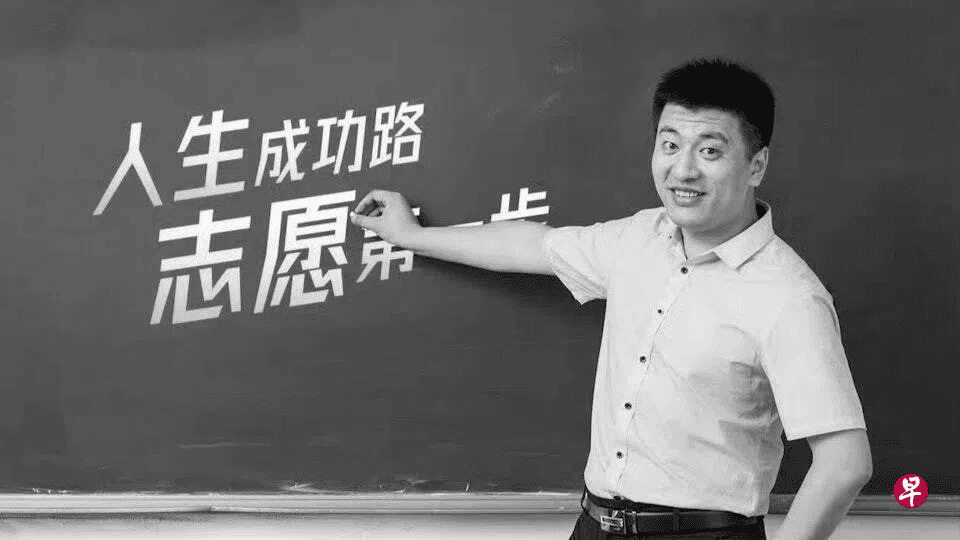 人生成功路
志愿第一步
早